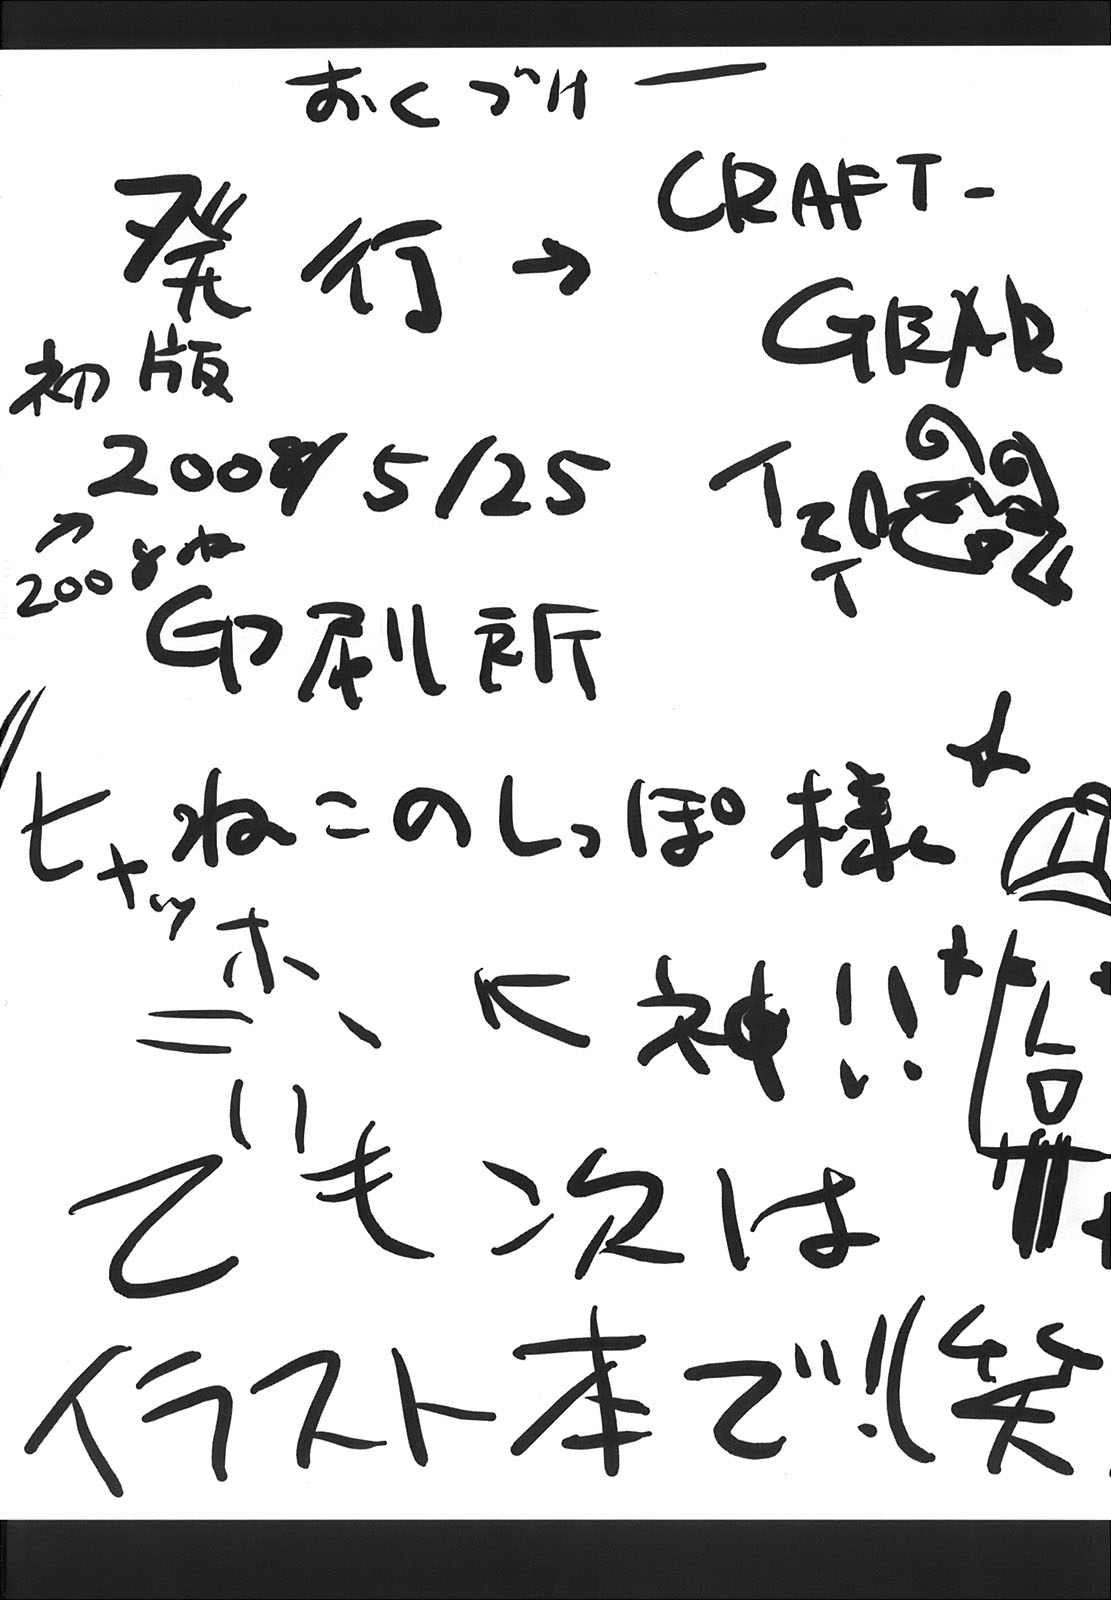 おくづけー
発行→CRAFT-
GEAR
初版
200 5/25
↗
2008ね
印刷所
ヒャッホーねこのしっぽ様
←神!!
でも次は
イラスト本で!!(笑